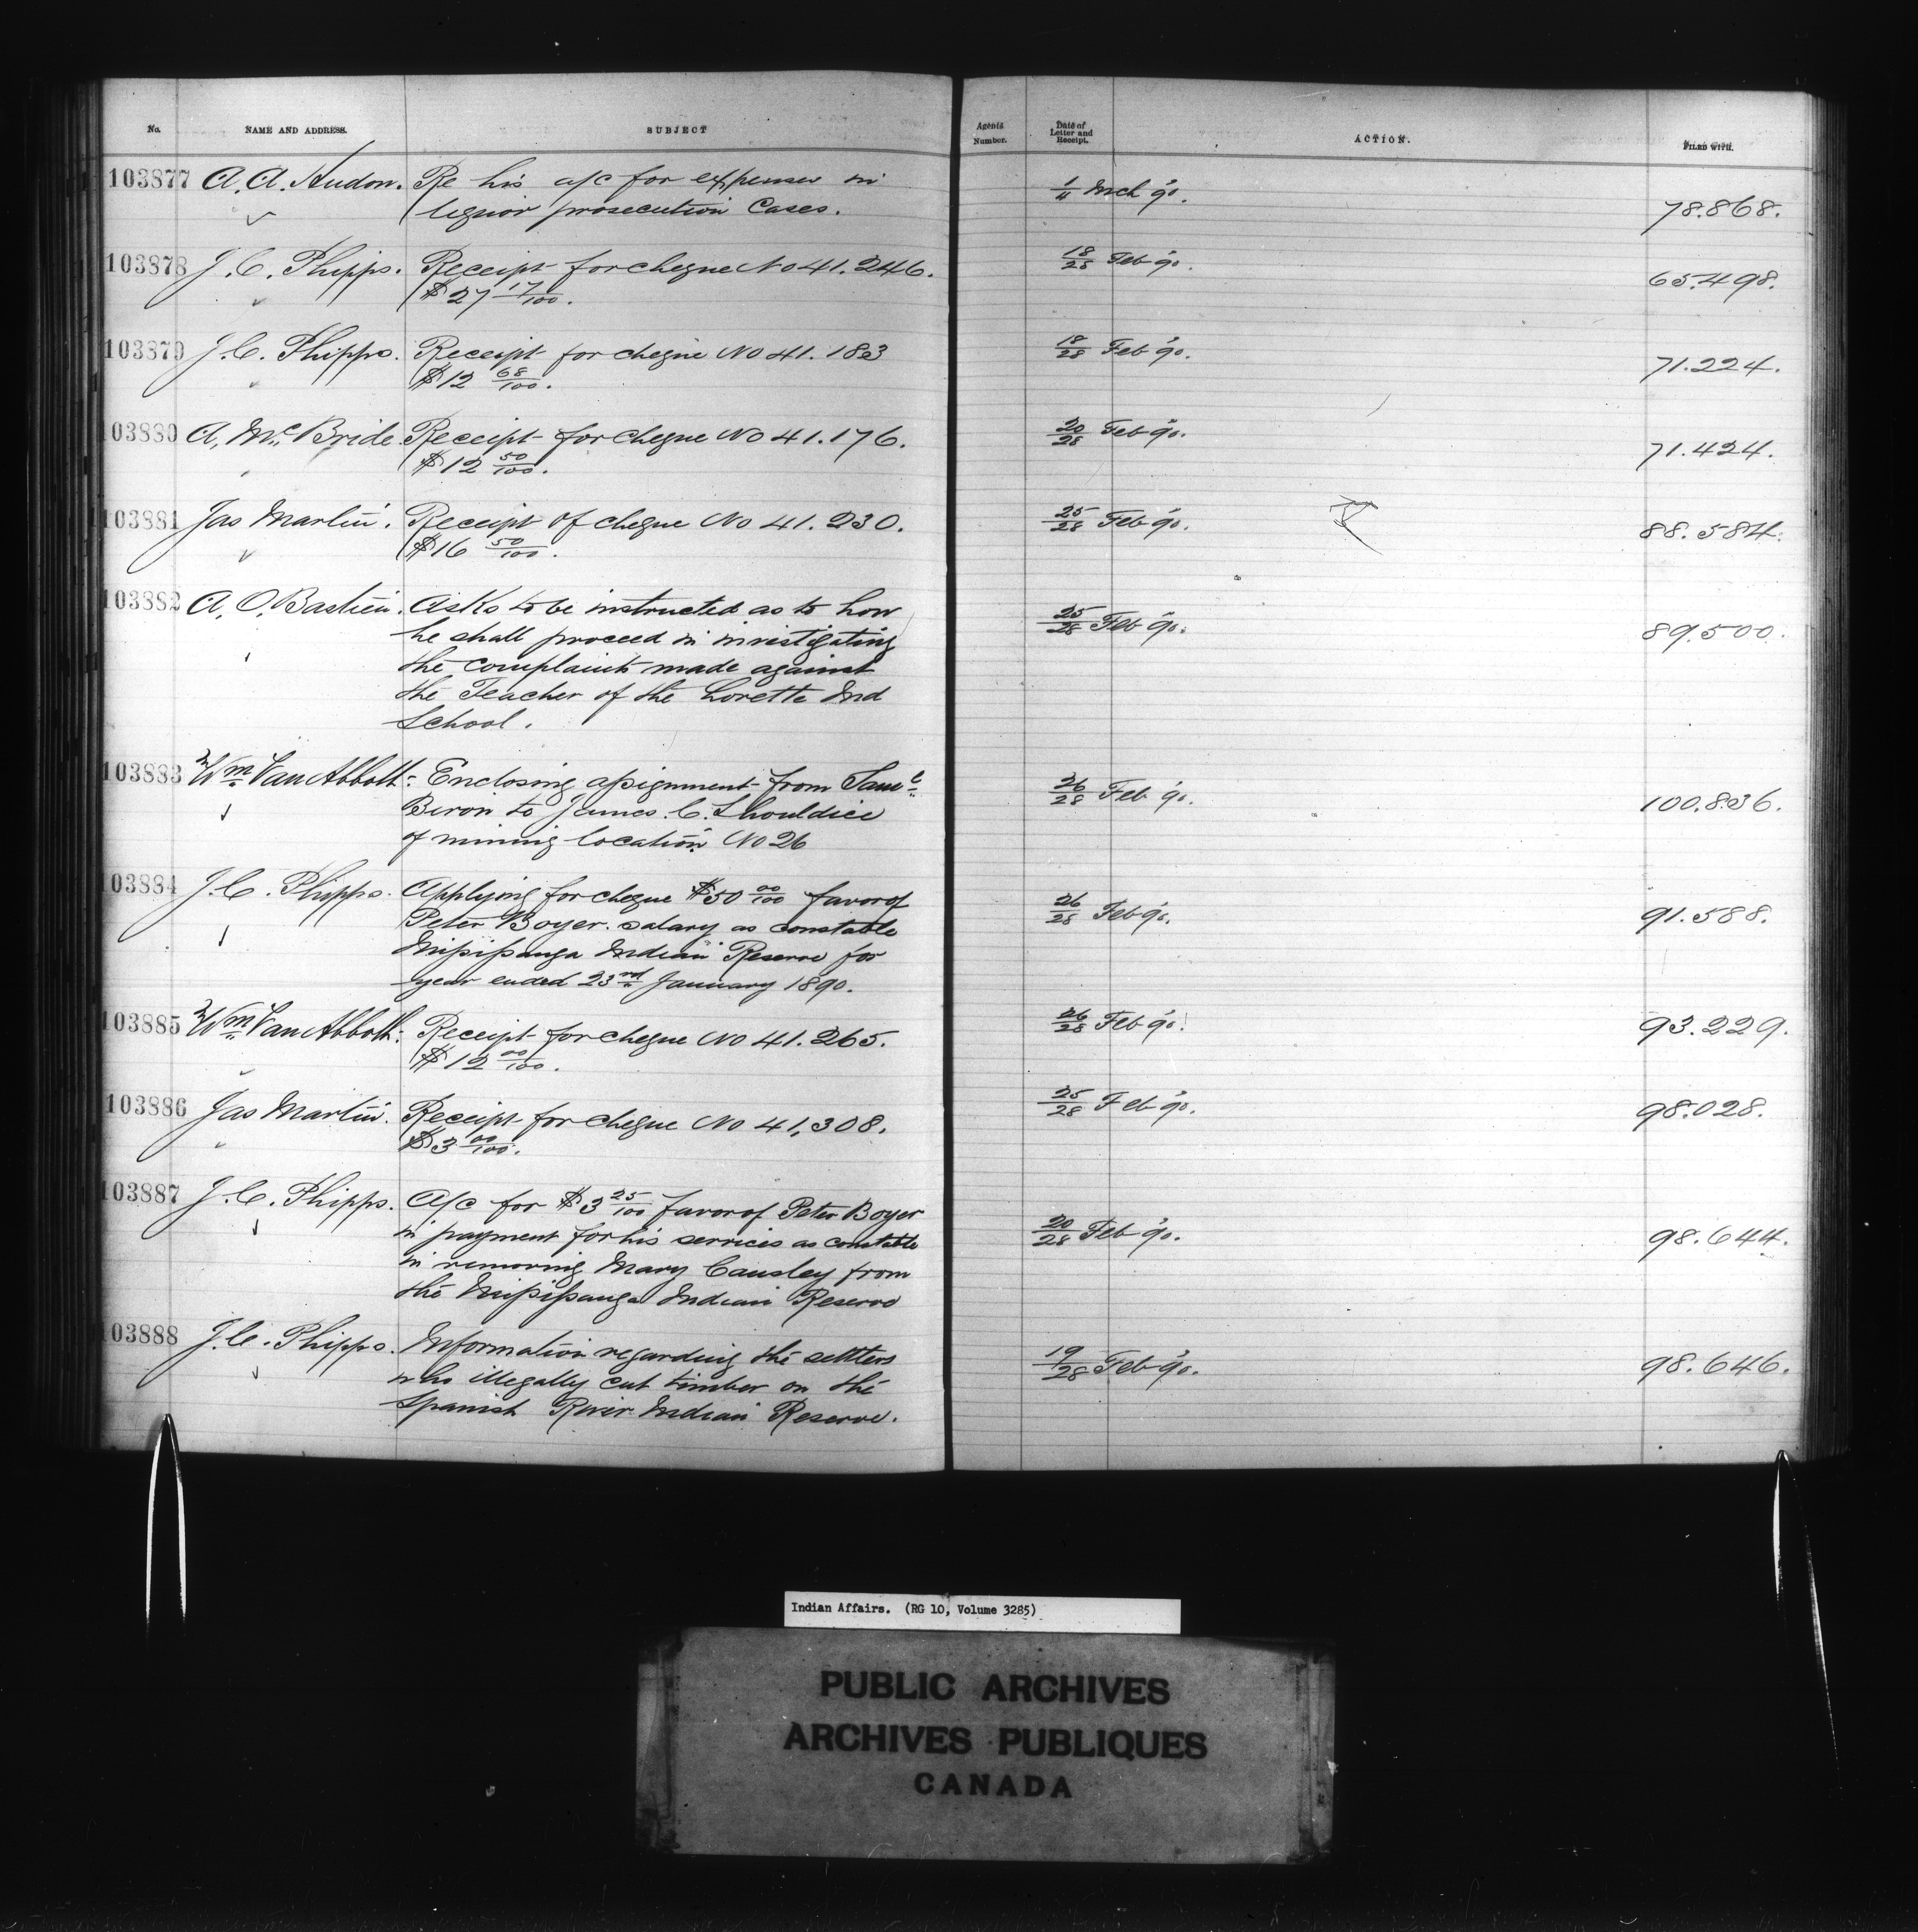 No. NAME AND ADDRESS. SUBJECT Agents Number. Date of Letter and Receipt. ACTION. FILED WITH.
103877 A. A. Hudon. Re his a/c for expenses in 1/4 Mch '90. 78.868.
liquor prosecution Cases.
103878 J. C. Phipps. Receipt for cheque No 41.246. 18/28 Feb '90. 65.498.
$27 17/100.
103879 J. C. Phipps. Receipt for cheque No 41.183 18/28 Feb '90. 71.224.
$12 68/100.
103880 A. Mc Bride Receipt for cheque No 41.176. 20/28 Feb '90. 71.424.
$12 50/100.
103881 Jas Martin. Receipt of cheque No 41.230. 25/28 Feb '90. 88.584.
$16 50/100.
103882 A. O. Bastien. Asks to be instructed as to how 25/28 Feb '90. 89.500.
he shall proceed in investigating
the complaints made against
the Teacher of the Lorette Ind
School.
103883 Wm Van Abbott. Enclosing assignment from Saml 26/28 Feb '90. 100.836.
Biron to James C. Shouldice
of mining location No 26
103884 J. C. Phipps. Applying for cheque $50 00/100 favor of 26/28 Feb '90. 91.588.
Peter Boyer. salary as constable
Missisauga Indian Reserve for
year ended 23rd January 1890.
103885 Wm Van Abbott. Receipt for cheque No 41.265. 26/28 Feb '90. 93.229.
$12 00/100.
103886 Jas Martin. Receipt for cheque No 41,308. 25/28 Feb '90. 98.028.
$3 00/100.
103887 J. C. Phipps. A/c for $3 25/100 favor of Peter Boyer 20/28 Feb '90. 98.644.
in payment for his services as constable
in removing Mary Causley from
the Missisauga Indian Reserve
103888 J. C. Phipps. Information regarding the settlers 19/28 Feb '90. 98.646.
who illegally cut timber on the
Spanish River Indian Reserve.
Indian Affairs. (RG 10, Volume 3285)
PUBLIC ARCHIVES
ARCHIVES PUBLIQUES
CANADA